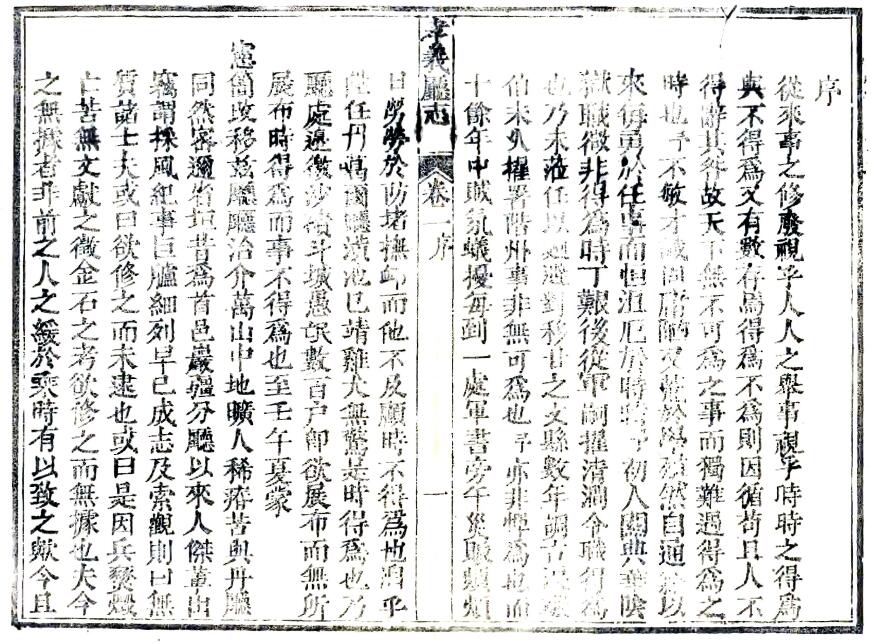 序
從來事之修廢視乎人人之舉事視乎時時之得爲
與不得爲又有數存焉得爲不爲則因循苟且人不
得辭其咎故天下無不可爲之事而獨難遇得爲之
時也予不敏才識固庸陋又懶於學然自通以
來每勇於任事而恒沮厄於時予初入關典華陰
獄職微非得爲時丁艱後從軍嗣擢清澗令職得爲
也乃未蒞任以迴避對移甘之文縣數年調古浪
伯未久擢署階州事非無可爲也予亦非憚爲也而
十餘年中賊氛蟻擾每到一處軍書旁午災賑頻頻
孝義廳志 卷一序 一
日勞勞於防堵撫卹而他不及顧時不得爲也洎乎
陞任丹噶爾廳潢池已靖雞犬無驚是時得爲也乃
廳處邊徼沙磧斗城愚氓數百户卽欲展布而無所
展布時得爲而事不得爲也至壬午夏蒙
憲簡改移玆廳廳治介萬山中地曠人稀瘠苦與丹廳
同然密邇省垣昔爲首邑巖疆分廳以來人傑輩出
竊謂採風紀事巨臚細列早已成志及索觀則曰無
質諸士夫或曰欲修之而未逮也或曰是因兵燹殘
亡苦無文獻之徵金石之考欲修之而無據也夫今
之無據者非前之人之緩於乘時有以致之歟今且